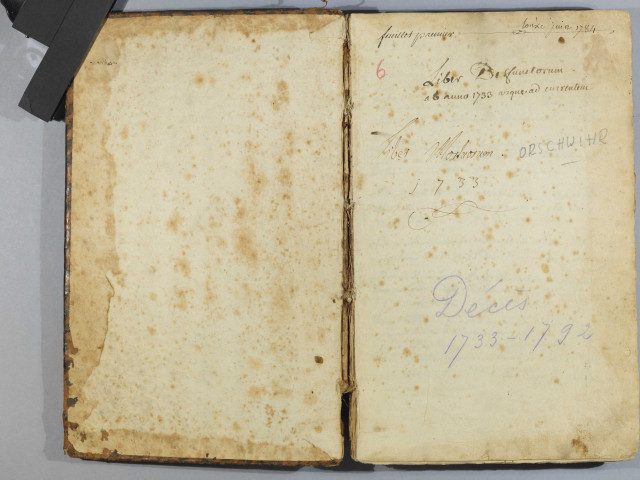 feuillet premier
juin 1784
6
Liber Defunctorum
ab anno 1733 usque ad
Liber Mortuorum ORSCHWIHR
1733
Décès
1733-1792